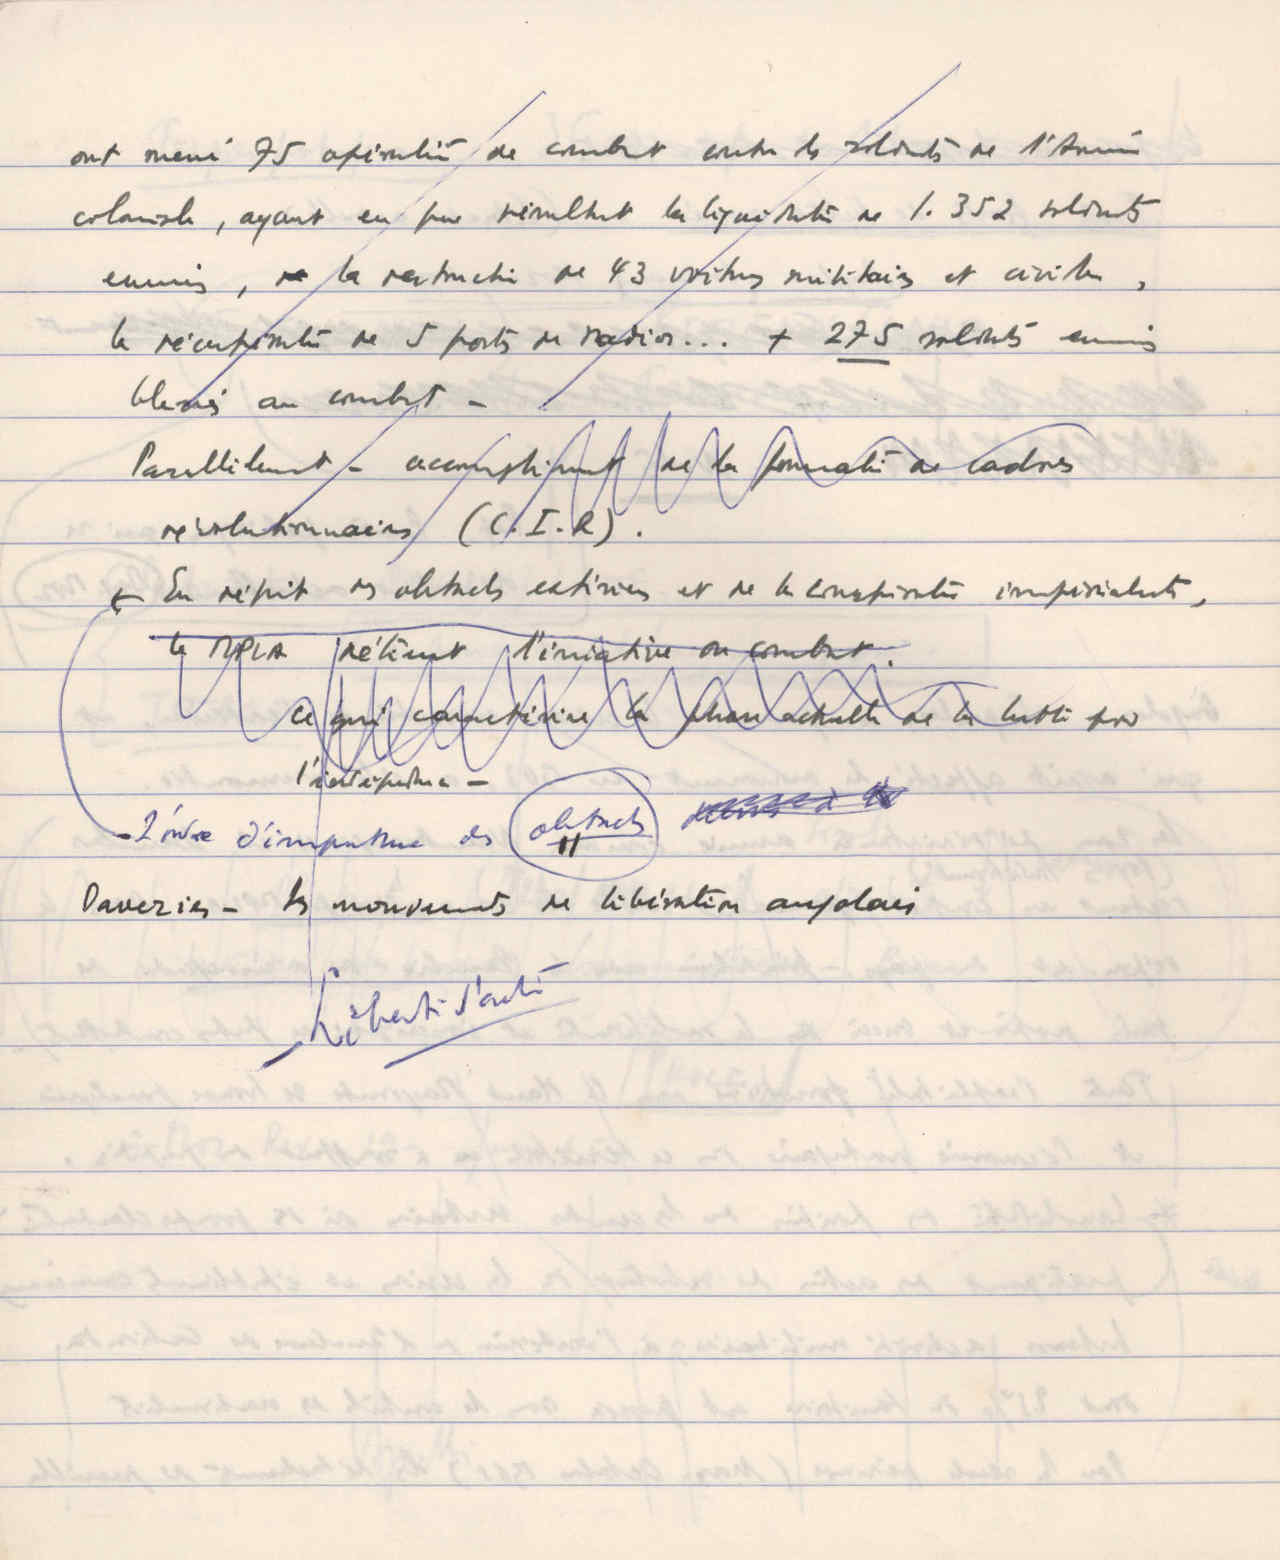 ont mené 75 opérations de combat contre les soldats de l'Armée
coloniale, ayant eu pour résultat la liquidation de 1.352 soldats
ennemis, de la destruction de 43 voitures militaires et civiles,
la récupération de 5 postes de radios... + 275 soldats ennemis
blessés au combat -
Parallèlement - accomplissement de la formation de cadres
révolutionnaires (C.I.R).
En dépit des obstacles extérieurs et de la conspiration impérialiste,
le MPLA détient l'iniative du combat.
ce qui caractérise la phase actuelle de la lutte pour
l'indépendance -
- L'ordre d'importance des obstacles
Davezies - les mouvements de libération angolais